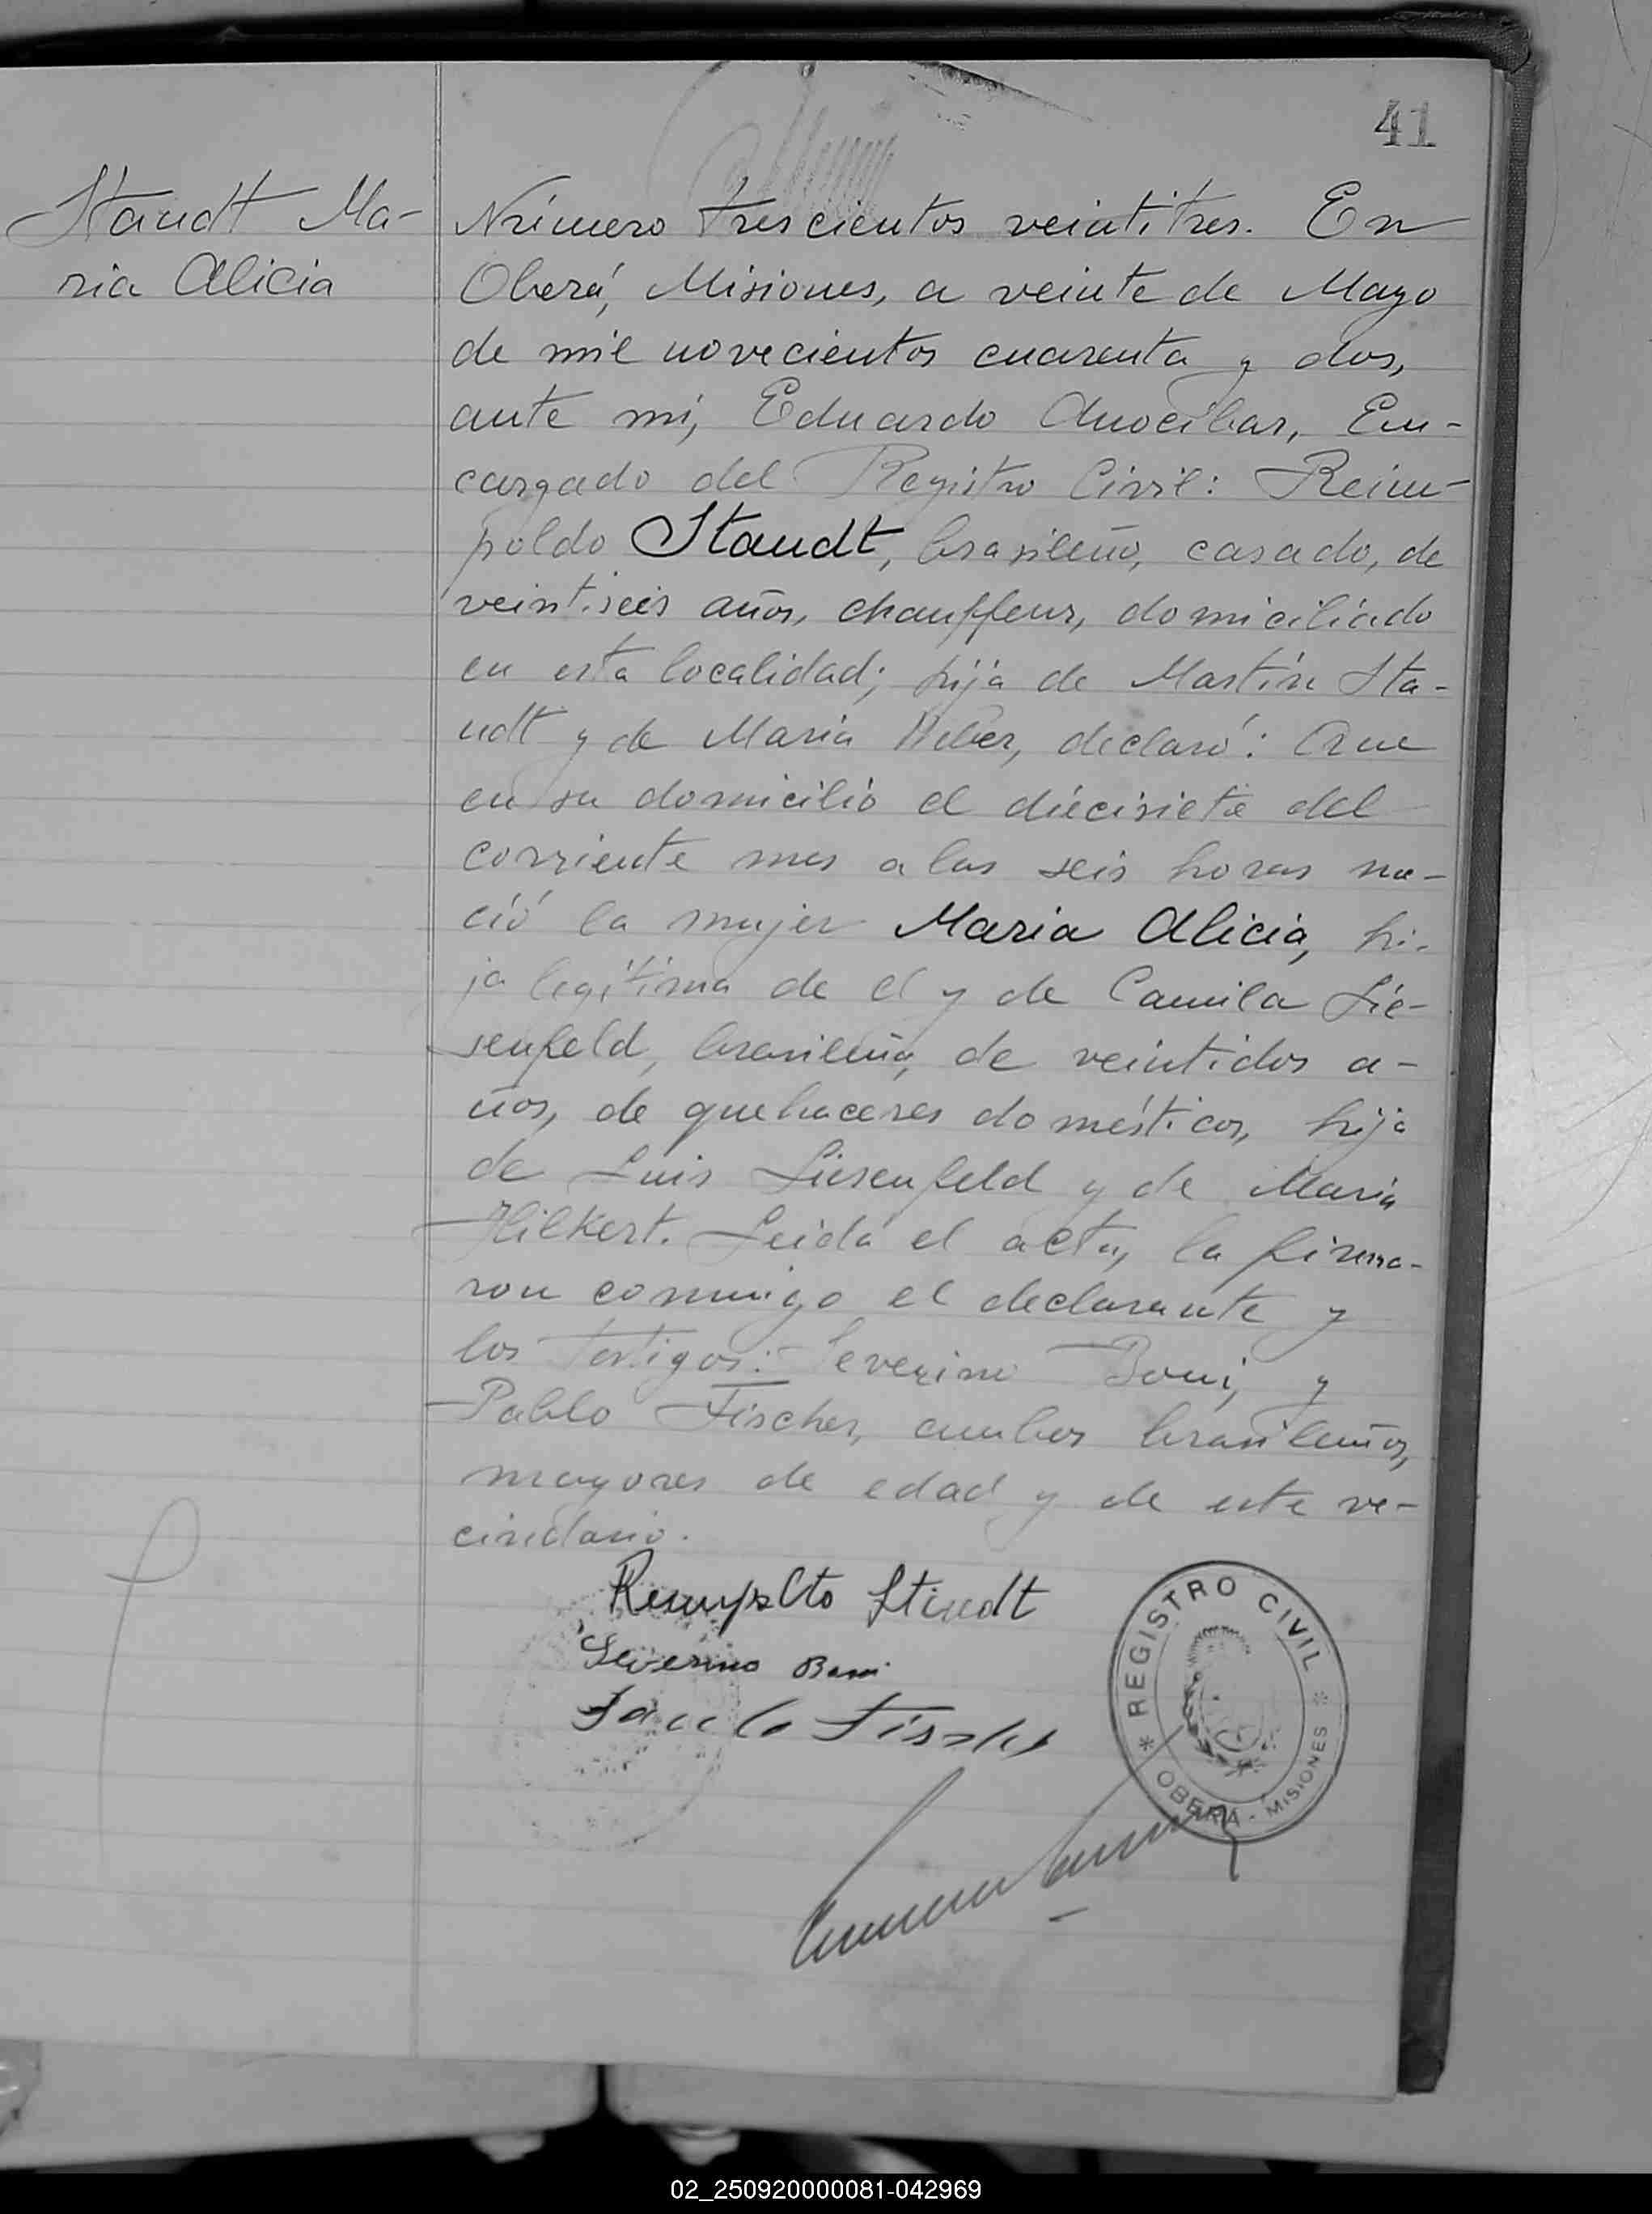 41
Staudt Ma-
ria Alicia
Número trescientos veintitres. En
Oberá, Misiones, a veinte de Mayo
de mil novecientos cuarenta y dos,
ante mi, Eduardo Anocibar, En-
cargado del Registro Civil: Reim-
poldo Staudt, brasileño, casado, de
veintiseis años, chauffeur, domiciliado
en esta localidad; hijo de Martín Sta-
udt y de Maria Weber, declaró: Que
en su domicilio el diecisiete del
corriente mes a las seis horas na-
ció la mujer Maria Alicia, hi-
ja legítima de el y de Camila Lie-
senfeld, brasileña, de veintidos a-
ños, de quehaceres domésticos, hija
de Luis Liesenfeld y de Maria
Hilkert. Leida el acta, la firma-
ron conmigo el declarante y
los testigos: Severino Boni, y
Pablo Fischer, ambos brasileños,
mayores de edad y de este ve-
cindario.
Staudt
Severino Boni
REGISTRO CIVIL
OBERÁ - MISIONES
02_250920000081-042969